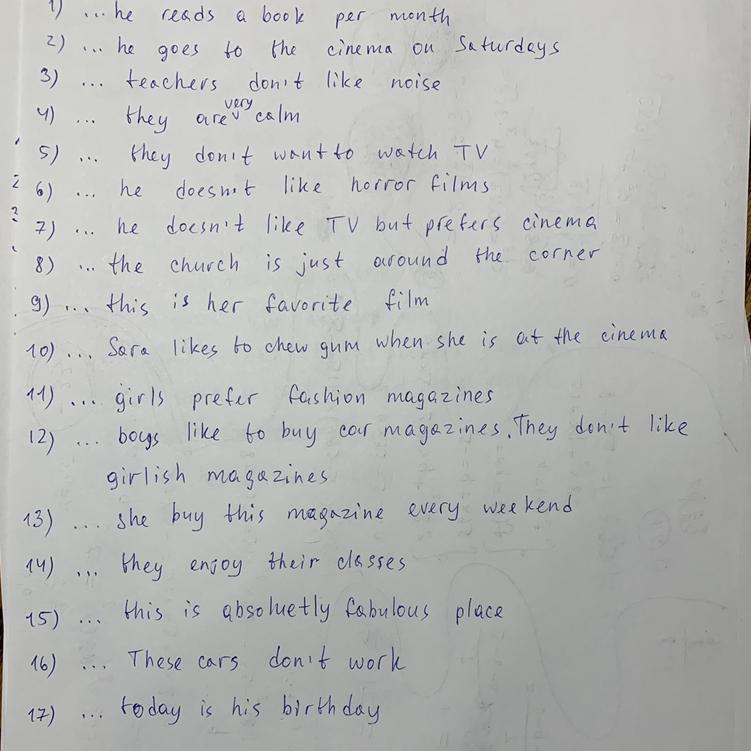 1) ... he reads a book per month
2) ... he goes to the cinema on Saturdays
3) ... teachers don't like noise
4) ... they are very calm
5) ... they don't want to watch TV
6) ... he doesn't like horror films
7) ... he doesn't like TV but prefers cinema
8) ... the church is just around the corner
9) ... this is her favorite film
10) ... Sara likes to chew gum when she is at the cinema
11) ... girls prefer fashion magazines
12) ... boys like to buy car magazines. They don't like
girlish magazines
13) ... she buy this magazine every weekend
14) ... they enjoy their classes
15) ... this is absoluetly fabulous place
16) ... These cars don't work
17) ... today is his birthday